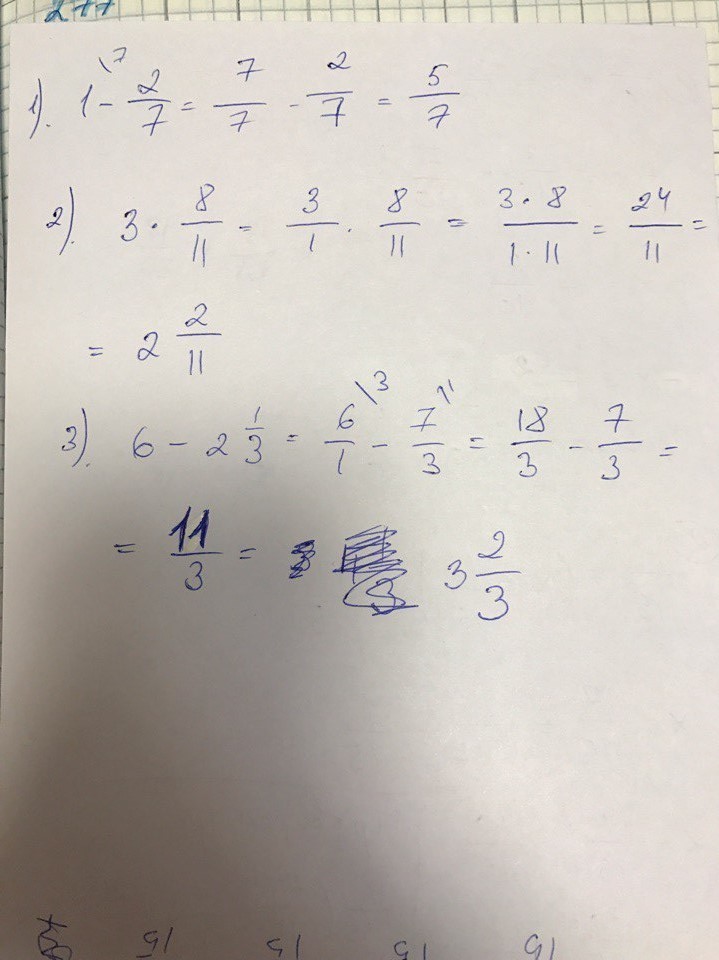 277
1). 1\7 - 2/7 = 7/7 - 2/7 = 5/7
2). 3 · 8/11 = 3/1 · 8/11 = 3·8/1·11 = 24/11 =
= 2 2/11
3). 6 - 2 1/3 = 6/1\3 - 7/3\1 = 18/3 - 7/3 =
= 11/3 = 3 2/3
15 15 15 15